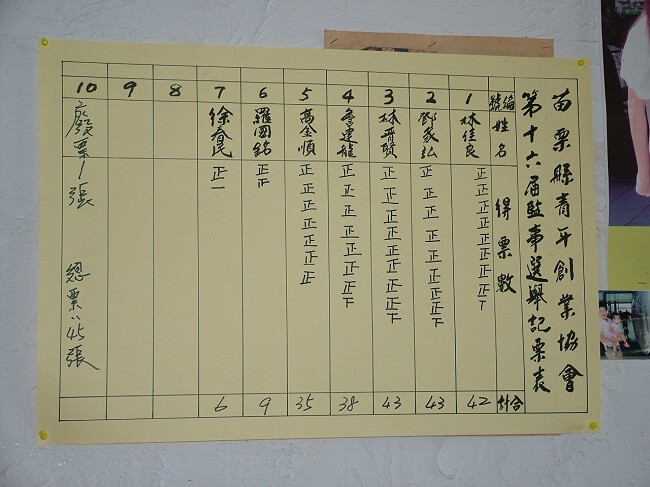 苗栗縣青年創業協會
第十六届監事選舉記票表
編號 姓名 得票數 合計
1 林佳良 正正正正正正正正丅 42
2 鄧家弘 正正正正正正正正下 43
3 林晉賢 正正正正正正正正下 43
4 龍 正正正正正正正下 38
5 高金順 正正正正正正正 35
6 羅國銘 正 9
7 徐春民 正一 6
8
9
10
廢票1張 總票:45張